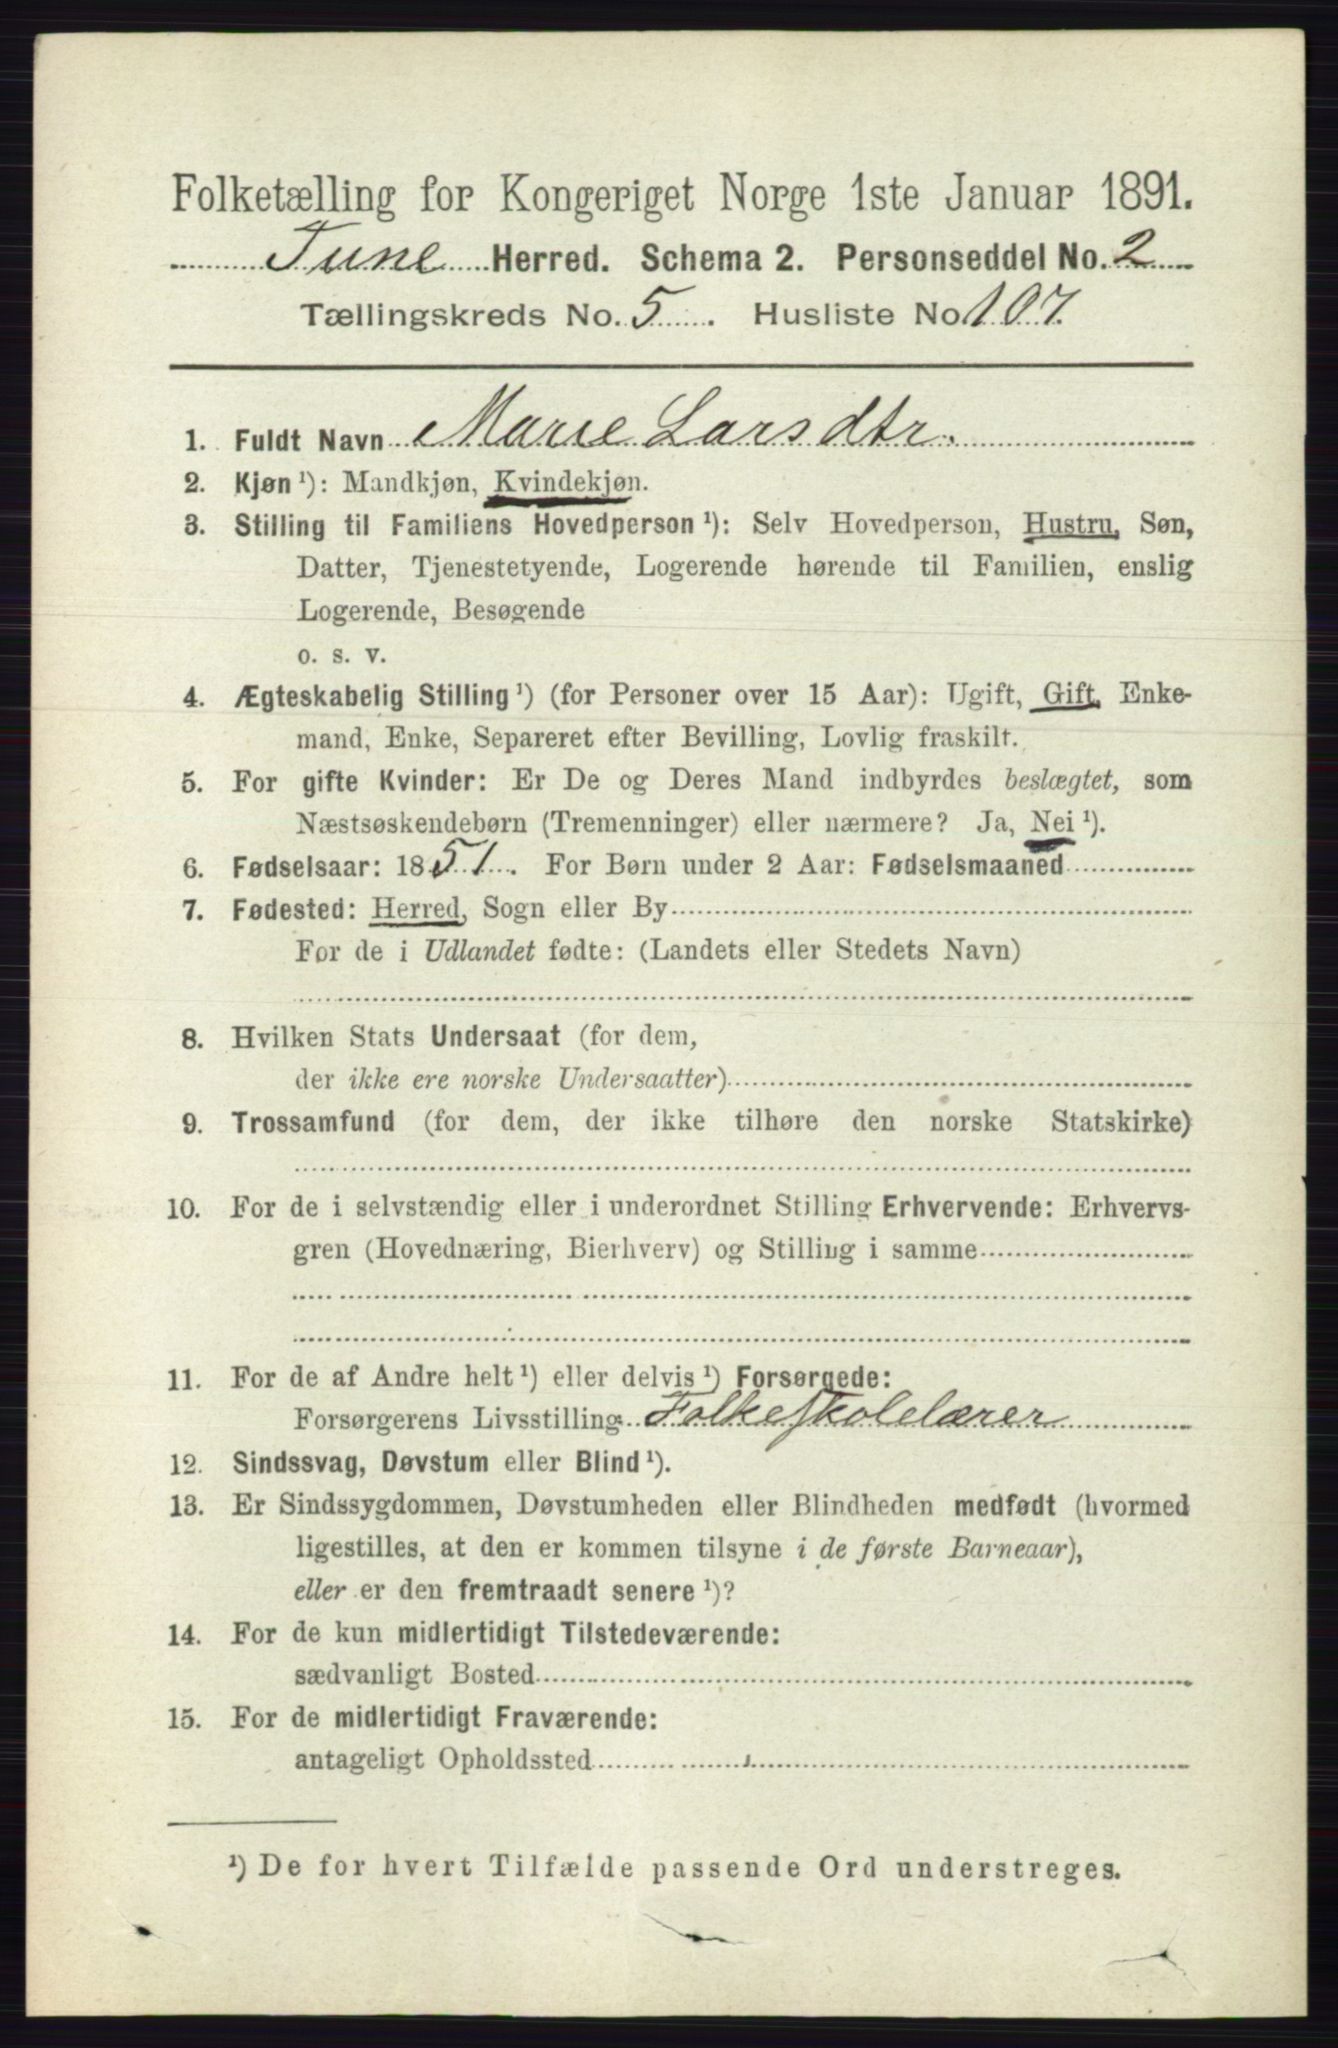 Folketælling for Kongeriget Norge 1ste Januar 1891.
Tune Herred. Schema 2. Personseddel No. 2
Tællingskreds No. 5. Husliste No 107.
1. Fuldt Navn Marie Larsdtr.
2. Kjøn ¹): Mandkjøn, Kvindekjøn.
3. Stilling til Familiens Hovedperson ¹): Selv Hovedperson, Hustru, Søn,
Datter, Tjenestetyende, Logerende hørende til Familien, enslig
Logerende, Besøgende
o. s. v.
4. Ægteskabelig Stilling ¹) (for Personer over 15 Aar): Ugift, Gift, Enke-
mand, Enke, Separeret efter Bevilling, Lovlig fraskilt.
5. For gifte Kvinder: Er De og Deres Mand indbyrdes beslægtet, som
Næstsøskendebørn (Tremenninger) eller nærmere? Ja, Nei ¹).
6. Fødselsaar: 1851. For Børn under 2 Aar: Fødselsmaaned
7. Fødested: Herred, Sogn eller By
For de i Udlandet fødte: (Landets eller Stedets Navn)
8. Hvilken Stats Undersaat (for dem,
der ikke ere norske Undersaatter)
9. Trossamfund (for dem, der ikke tilhøre den norske Statskirke)
10. For de i selvstændig eller i underordnet Stilling Erhvervende: Erhvervs-
gren (Hovednæring, Bierhverv) og Stilling i samme
11. For de af Andre helt ¹) eller delvis ¹) Forsørgede:
Forsørgerens Livsstilling Folkeskolelærer
12. Sindssvag, Døvstum eller Blind ¹).
13. Er Sindssygdommen, Døvstumheden eller Blindheden medfødt (hvormed
ligestilles, at den er kommen tilsyne i de første Barneaar),
eller er den fremtraadt senere ¹)?
14. For de kun midlertidigt Tilstedeværende:
sædvanligt Bosted
15. For de midlertidigt Fraværende:
antageligt Opholdssted
¹) De for hvert Tilfælde passende Ord understreges.